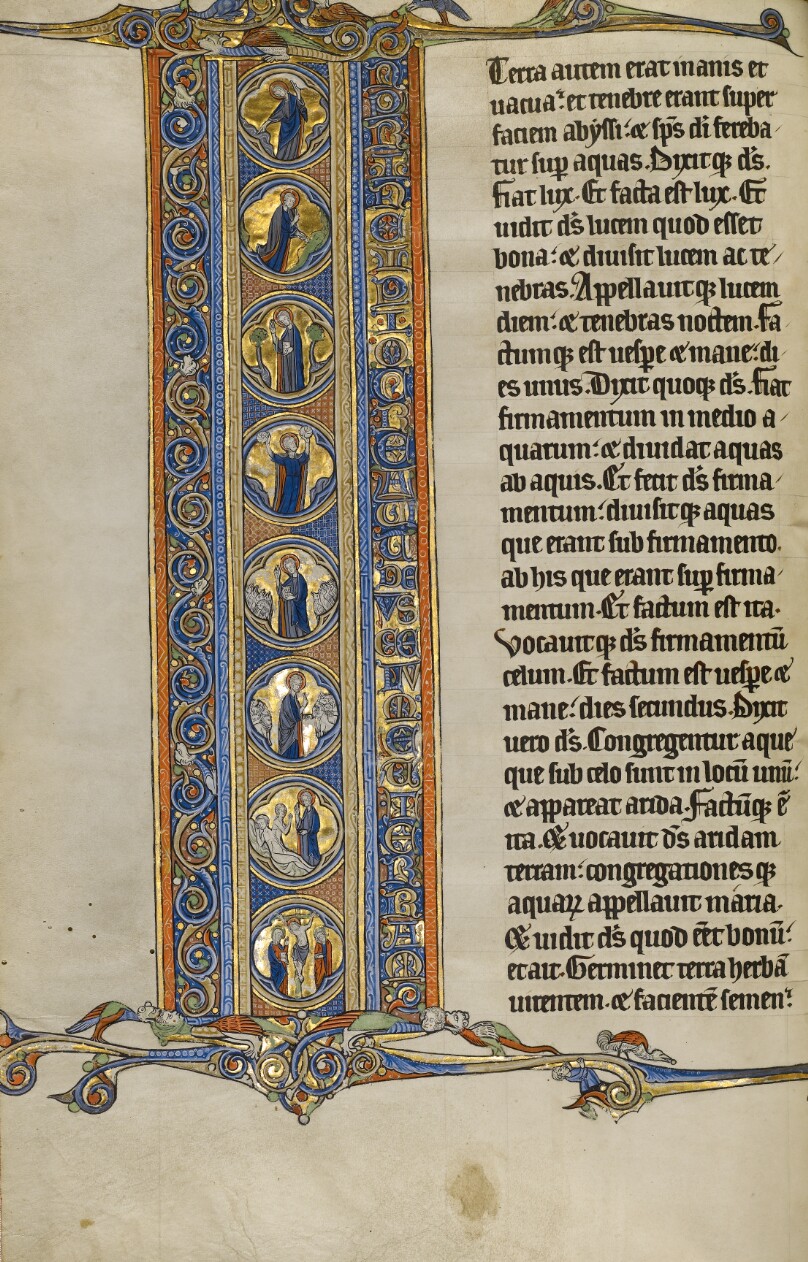 IN PRINCIPIO CREAUIT DEUS CELUM ET TERRAM
Terra autem erat inanis et
uacua: et tenebre erant super
faciem abyssi: & sp̄s dī fereba
tur sup aquas. Dixitqꝫ d̄s.
fiat lux. Et facta est lux. Et
uidit d̄s lucem quod esset
bona: & diuisit lucem ac te
nebras. Appellauitqꝫ lucem
diem: & tenebras noctem. Fa
ctumqꝫ est uespe & mane: di
es unus. Dixit quoqꝫ d̄s. fiat
firmamentum in medio a
quarum: & diuidat aquas
ab aquis. Et fecit d̄s firma
mentum: diuisitqꝫ aquas
que erant sub firmamento.
ab his que erant sup firma
mentum. Et factum est ita.
Vocauitqꝫ d̄s firmamentū
celum. Et factum est uespe &
mane: dies secundus. Dixit
uero d̄s. Congregentur aque
que sub celo sunt in locū unū:
& appareat arida. Factūqꝫ ē
ita. Et uocauit d̄s aridam
terram: congregationesqꝫ
aquaꝝ appellauit maria.
Et uidit d̄s quod eēt bonū:
et ait. Germinet terra herbā
uirentem. & facientē semen: